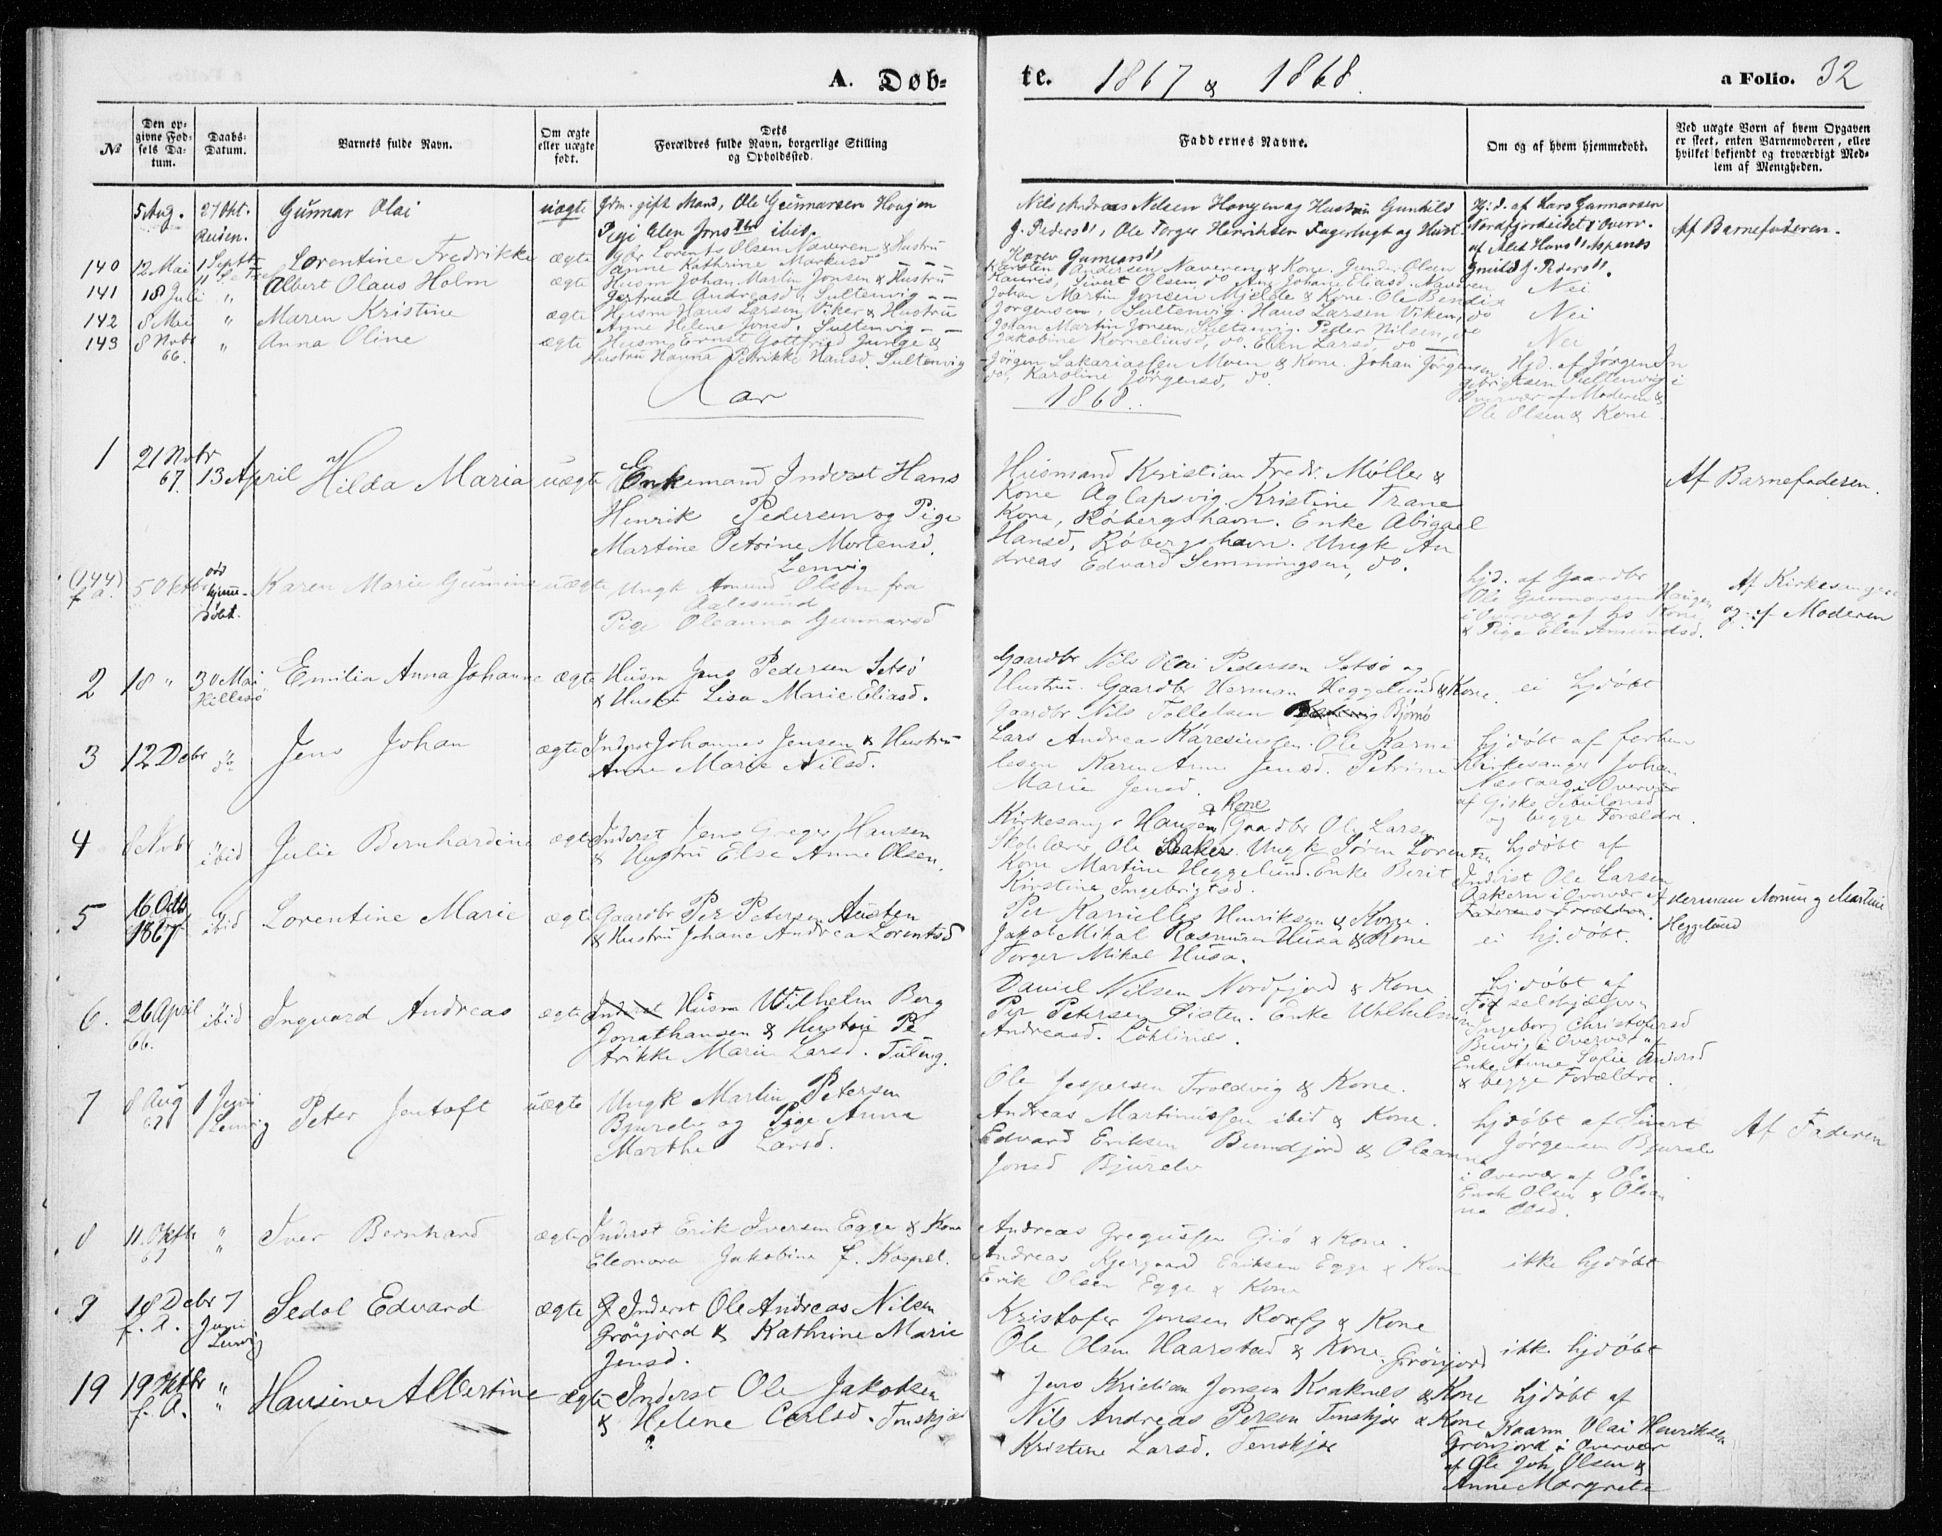 A. Døb=
te. 1867 & 1868.
a Folio. 32
№
Den op=
givne Fød=
sels Da=
tum.
Daabs=
Datum.
Barnets fulde Navn.
Om ægte
eller uægte
født.
Dets
Forældres fulde Navn, borgerlige Stilling
og Opholdssted.
Faddernes Navne.
Om og af hvem hjemmedøbt.
Ved uægte Børn af hvem Opgaven
er skeet, enten Barnemoderen, eller
hvilket bekjendt og troværdigt Med=
lem af Menigheden.
5 Aug. 27 Okt. Gunnar Olai uægte gift Mand, Ole Gunnarsen Haugen
Pige Elen ibid.
Nils Andreas Nilsen Haugen og Hustru Gunhild
Ole Torger Henriksen Fagerhugt og Hust.
Karen Gunnars"
Hjd. af Lars Gunnarsen
Nordfjordeidet i Overv.
Af Barnefaderen.
140 12 Mai Lorentine Fredrikke ægte Lorents Olsen Naveren & Hustru
Anne Kathrine Markusd
Andersen Naveren & Kone. Gunder Olsen
Sivert Olsen, do Johane Eliasd. Naveren
Nei
141 18 Juli " Albert Olaus Holm ægte Husm Johan Martin Jonsen & Hustru
Gertrud Andreasd, Sultenvig
Johan Martin Jonsen Mjelde & Kone. Ole Bendix
Jörgensen, Sultenvig. Hans Larsen Viken, do
Nei
142 8 Mai " Maren Kristine ægte Husm Hans Larsen Viken & Hustru
Anne Helene Jonsd. Sultenvig
Johan Martin Jonsen, Sultenvig. Peder Nilsen, do
Jakobine Korneliusd, do. Elen Larsd, do
Nei
143 8 Novbr 66. " Anna Oline ægte Husm Ernst Gottfried Junge &
Hustru Hanna Petrikke Hansd. Sultenvig
Jörgen Sakariassen Moen & Kone. Johan Jörgensen
do, Karoline Jörgensd, do.
Hjd. af Jörgen In
gebrigtsen Sultenvig i
Overvær af Moderen &
Ole Olsen & Kone
Aar 1868.
1 21 Novbr 67. 13 April Hilda Maria uægte Enkemand Inderst Hans
Henrik Pedersen og Pige
Martine Petrine Mortensd.
Lenvig
Husmand Kristian Fredr. Møller &
Kone Aglapsvig. Kristine Trane
Kone, Röbergshavn. Enke Abigael
Hansd, Röbergshavn. Ungk An
dreas Edvard Semmingsen, do.
Af Barnefaderen.
(144) f. a. 5 Oktbr Karen Marie Gunnine uægte Ungk Amund Olsen fra
Aalesund
Pige Oleanna Gunnarsd
hjd. af Gaardbr
Ole Gunnarsen Haugen
i Overvær af hs Kone
& Pige Elen Amundsd.
Af Kirkesangeren
og af Moderen
2 18 " 30 Mai Hillesö Emilia Anna Johanne ægte Husm Jens Pedersen Setsö
& Hustr Lisa Marie Eliasd.
Gaardbr Nils Olai Pedersen Setsö og
Hustru. Gaardbr Herman Heggelund & Kone.
Gaardbr Nils Tollefsen Bjørnö
ei hjdøbt
3 12 Debr do Jens Johan ægte Inderst Johannes Jensen & Hustru
Anne Marie Nilsd.
Lars Andreas Karesiussen. Ole Karne
lesen Karen Anne Jensd. Petrine
Marie Jensd.
hjdøbt af forhen
Kirkesanger Johan
i Overvær
og begge Forældre.
4 8 Novbr ibid Julie Bernhardine ægte Inderst Jens Greger Hansen
& Hustru Else Anne Olsen.
Kirkesang. Haugen & Kone Gaardbr Ole Larsen
Skolelærer Ole Bakke. Ungk Sören Lorentsen
Kone Martine Heggelund. Enke Berit
Kirstine Ingebrigtsd.
hjdøbt af
Inderst Ole Larsen
i Overvær af
Faderens Forældre.
Herman Norum og Martine
Heggelund
5 16 Octb 1867 ibid Lorentine Marie ægte Gaardbr Per Petersen Austen
& Hustru Johane Andrea Lorentsd
Per Kannelles Henriksen & Kone.
Jakob Mikal Rasmusen Husa & Kone
Torger Mikal Husa.
ei hj.døbt.
6. 26 April 66. ibid Ingvard Andreas ægte Inderst Husm Wilhelm Berg
Jonathansen & Hustru Pe
trikke Marie Larsd. Tuleng.
Daniel Nilsen Nordfjord & Kone
Per Petersen Östen. Enke Wilhelmine
Andreasd. Löhlines.
hjdøbt af
Fødselshjælperen
Ingeborg Christofersd
i Overvær af
Enke Anne Sofie Andersd
& begge Forældre.
7 8 Aug 67 1 Juni Lenvig Peter Jentoft uægte Ungk Martin Petersen
Bjurelv og Pige Anna
Marthe Larsd.
Ole Jespersen Troldvig & Kone.
Andreas Martinussen ibid & Kone.
Edvard Eriksen Bundfjord & Oleanna
Jonsd Bjurelv
hjdøbt af Sivert
Jörgensen Bjurelv
i Overvær af Ole
Enok Olsen & Olea
na Olsd.
Af Faderen
8 11. Oktb 67 " Iver Bernhard ægte Inderst Erik Iversen Egge & Kone
Eleonora Jakobine f. Kaspel.
Andreas Gregussen Giö & Kone.
Andreas Kjergaard Eriksen Egge & Kone
Erik Olsen Egge & Kone
ikke hjdöbt
9 18 Debr f. A. 7 Juni Lenvig Sedol Edvard ægte Inderst Ole Andreas Nilsen
Grönjord & Kathrine Marie
Jensd.
Kristofer Jonsen & Kone
Ole Olsen Haarstad & Kone. Grönjord
ikke hjdöbt
19 19 Oktbr f. A. " Hansine Albertine ægte Inderst Ole Jakobsen
& Helene Carlsd. Tenskjær
?
Jens Kristian Jonsen Kraknes & Kone
Nils Andreas Persen Tenskjær & Kone
Kristine Larsd. Tenskjær
hjdøbt af
Olai Henriksen
Grönjord i Overvær
af Ole Joh. Olsen &
Anne Margrete